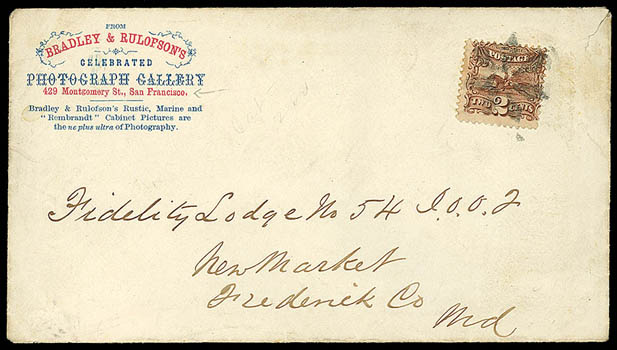 FROM
BRADLEY & RULOFSON'S
CELEBRATED
PHOTOGRAPH GALLERY
429 Montgomery St., San Francisco.
Bradley & Rulofson's Rustic, Marine and
"Rembrandt" Cabinet Pictures are
the ne plus ultra of Photography.
POSTAGE
TWO 2 CENTS
Fidelity Lodge No 54 I.O.O.F
New Market
Frederick Co
Md